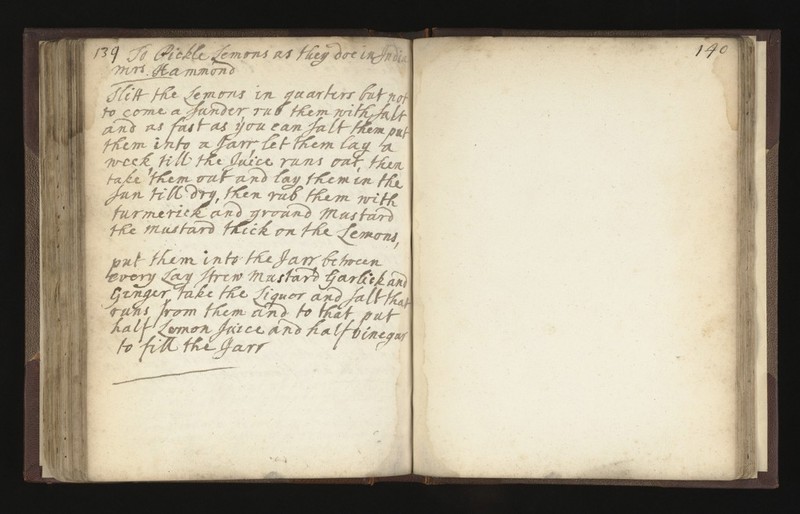 139 To Pickle Lemons as they doe in India
Mrs. Hammond
Slitt the Lemons in quarters but not
to come a sunder, rub them with salt
and as fast as you can salt them put
them into a Jarr, let them lay a
week till the Juice runs out, then
take them out and lay them in the
sun till dry, then rub them with
turmerick and ground Mustard
the Mustard thick on the Lemons,
put them into the Jarr between
every Lay strew Mustard Garlick and
Ginger, take the Liquor and salt that
runs from them and to that put
half Lemon Juice and half vinegar
to fill the Jarr
140